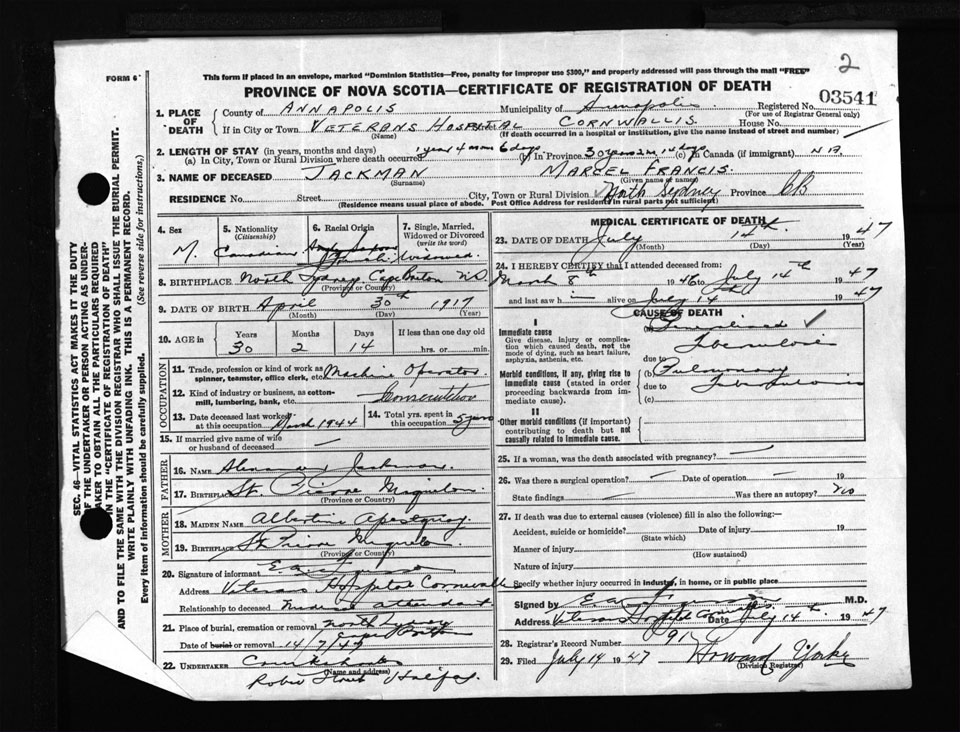 2
FORM 6
This form if placed in an envelope, marked "Dominion Statistics—Free, penalty for improper use $300," and properly addressed will pass through the mail "FREE"
PROVINCE OF NOVA SCOTIA—CERTIFICATE OF REGISTRATION OF DEATH
1. PLACE OF DEATH County of ANNAPOLIS Municipality of Annapolis Registered No. 03541
(For use of Registrar General only)
If in City or Town VETERANS HOSPITAL CORNWALLIS House No.
(Name) (If death occurred in a hospital or institution, give the name instead of street and number)
2. LENGTH OF STAY (in years, months and days)
(a) In City, Town or Rural Division where death occurred 1 year 4 mos 6 days (b) In Province 30 years 2 m 14 days (c) In Canada (if immigrant) N A.
3. NAME OF DECEASED JACKMAN MARCEL FRANCIS.
(Surname) (Given name or names)
RESIDENCE No. Street City, Town or Rural Division North Sydney Province CB
(Residence means usual place of abode. Post Office Address for residents in rural parts not sufficient)
4. Sex
M.
5. Nationality
(Citizenship)
Canadian
6. Racial Origin
7. Single, Married, Widowed or Divorced
(write the word)
Widowed
8. BIRTHPLACE North Sydney Cape Breton N.S.
(Province or Country)
9. DATE OF BIRTH April 30th 1917
(Month) (Day) (Year)
10. AGE in Years Months Days If less than one day old
30 2 14 hrs. or min.
OCCUPATION
11. Trade, profession or kind of work as spinner, teamster, office clerk, etc. Machine Operator
12. Kind of industry or business, as cotton-mill, lumbering, bank, etc. Construction
13. Date deceased last worked at this occupation March 1944
14. Total yrs. spent in this occupation 5 years
15. If married give name of wife or husband of deceased —
FATHER
16. NAME Jackman.
17. BIRTHPLACE St. Pierre Miquelon
(Province or Country)
MOTHER
18. MAIDEN NAME Albertine
19. BIRTHPLACE St Pierre Miquelon.
(Province or Country)
20. Signature of informant E.A.
Address Veterans Hospital Cornwallis
Relationship to deceased medical attendant
21. Place of burial, cremation or removal North Sydney
Date of burial or removal 14/7/47
22. UNDERTAKER
(Name and address)
Halifax.
MEDICAL CERTIFICATE OF DEATH
23. DATE OF DEATH July 14th 1947
(Month) (Day) (Year)
24. I HEREBY CERTIFY that I attended deceased from:
March 8th 1946 to July 14th 1947
and last saw h i alive on July 14th 1947
CAUSE OF DEATH
I
Immediate cause
Give disease, injury or complication which caused death, not the mode of dying, such as heart failure, asphyxia, asthenia, etc.
(a) Generalized Tuberculosis
due to
Morbid conditions, if any, giving rise to immediate cause (stated in order proceeding backwards from immediate cause).
(b) Pulmonary Tuberculosis
due to
(c)
II
Other morbid conditions (if important) contributing to death but not causally related to immediate cause.
25. If a woman, was the death associated with pregnancy? —
26. Was there a surgical operation? — Date of operation — 19
State findings — Was there an autopsy? No
27. If death was due to external causes (violence) fill in also the following:—
Accident, suicide or homicide? Date of injury 19
(State which)
Manner of injury
(How sustained)
Nature of injury
Specify whether injury occurred in industry, in home, or in public place
Signed by E.A. M.D.
Address Veterans Hospital Cornwallis Date July 14th 1947
28. Registrar's Record Number 91
29. Filed July 14 1947 Howard Yorke
(Division Registrar)
SEC. 46—VITAL STATISTICS ACT MAKES IT THE DUTY
OF THE UNDERTAKER OR PERSON ACTING AS UNDER-
TAKER TO OBTAIN ALL THE PARTICULARS REQUIRED
IN THE "CERTIFICATE OF REGISTRATION OF DEATH"
AND TO FILE THE SAME WITH THE DIVISION REGISTRAR WHO SHALL ISSUE THE BURIAL PERMIT.
WRITE PLAINLY WITH UNFADING INK. THIS IS A PERMANENT RECORD.
Every item of information should be carefully supplied. (See reverse side for instructions.)